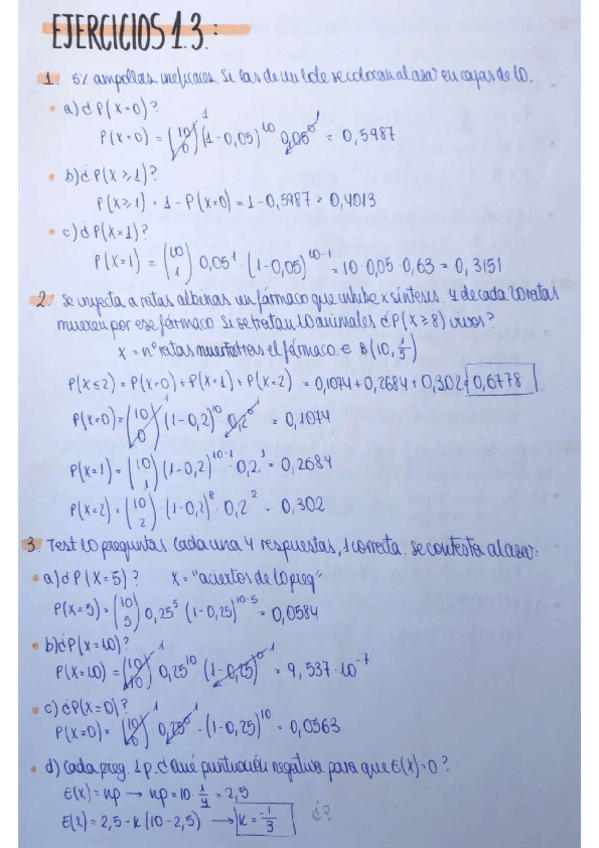 EJERCICIOS 1.3.:
1. 5% ampollas ineficaces. Si las de un lote se colocan al azar en cajas de 10.
• a) ¿P(X=0)?
P(X=0) = (10 0) 1 (1-0,05)^10 0,05^0 1 = 0,5987
• b) ¿P(X≥1)?
P(X≥1) = 1 - P(X=0) = 1 - 0,5987 = 0,4013
• c) ¿P(X=1)?
P(X=1) = (10 1) 0,05^1 · (1-0,05)^10-1 = 10 · 0,05 · 0,63 = 0,3151
2. Se inyecta a ratas albinas un fármaco que inhibe x síntesis. 4 de cada 20 ratas
mueren por ese fármaco. Si se tratan 10 animales ¿P(X≥8) vivos?
X = nº ratas muertas tras el fármaco. ∈ B(10, 1/5)
P(X≤2) = P(X=0) + P(X=1) + P(X=2) = 0,1074 + 0,2684 + 0,302 = 0,6778
P(X=0) = (10 0) 1 (1-0,2)^10 0,2^0 1 = 0,1074
P(X=1) = (10 1) (1-0,2)^10-1 · 0,2^1 = 0,2684
P(X=2) = (10 2) · (1-0,2)^8 · 0,2^2 = 0,302
3. Test 10 preguntas cada una 4 respuestas, 1 correcta. Se contesta al azar:
• a) ¿P(X=5)? X = "aciertos de 10 preg"
P(X=5) = (10 5) 0,25^5 (1-0,25)^10-5 = 0,0584
• b) ¿P(X=10)?
P(X=10) = (10 10) 1 0,25^10 · (1-0,25)^0 1 = 9,537·10^-7
• c) ¿P(X=0)?
P(X=0) = (10 0) 1 · 0,25^0 1 · (1-0,25)^10 = 0,0563
• d) Cada preg. 1 p. ¿Qué puntuación negativa para que E(X)=0?
E(X) = np → np = 10 · 1/4 = 2,5
E(X) = 2,5 - k (10-2,5) → k = -1/3 ¿?